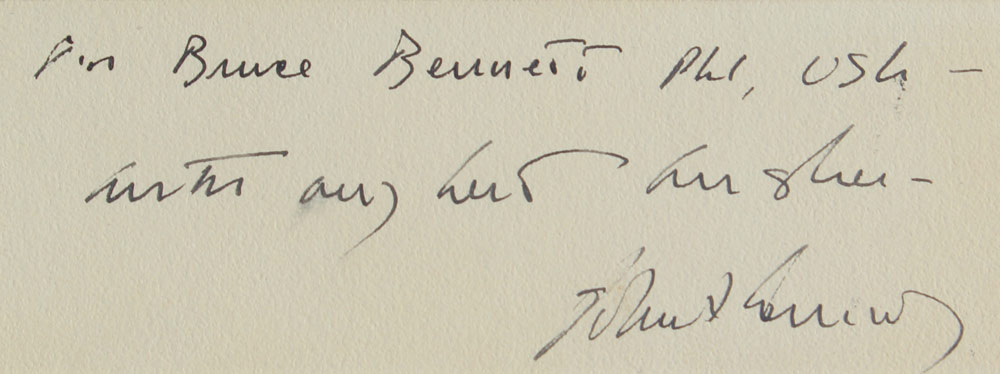 For Bruce Bennett Ph1, USN —
with my best wishes -
John